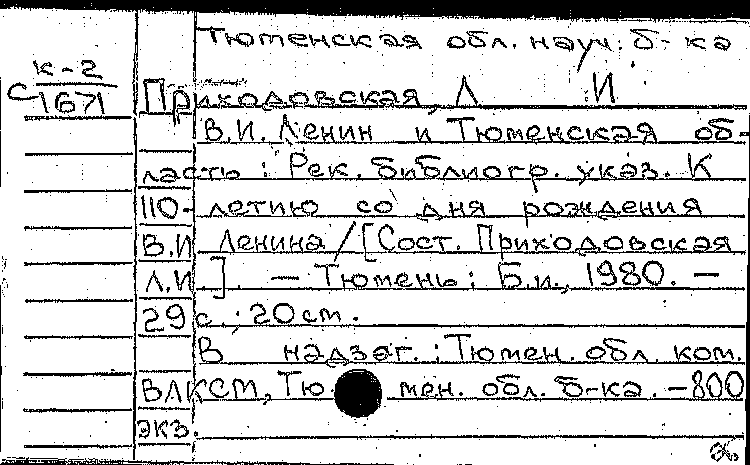 Тюменская обл. науч. б-ка
К-2
С 1671 Приходовская, Л И
В.И. Ленин и Тюменская об-
ласть : Рек. библиогр. указ. К
110-летию со дня рождения
В.И Ленина / [Сост. Приходовская
Л.И.]. — Тюмень : Б.и., 1980. —
29 с. ; 20 см.
В надзаг. : Тюмен. обл. ком.
ВЛКСМ, Тюмен. обл. б-ка. — 800
экз.